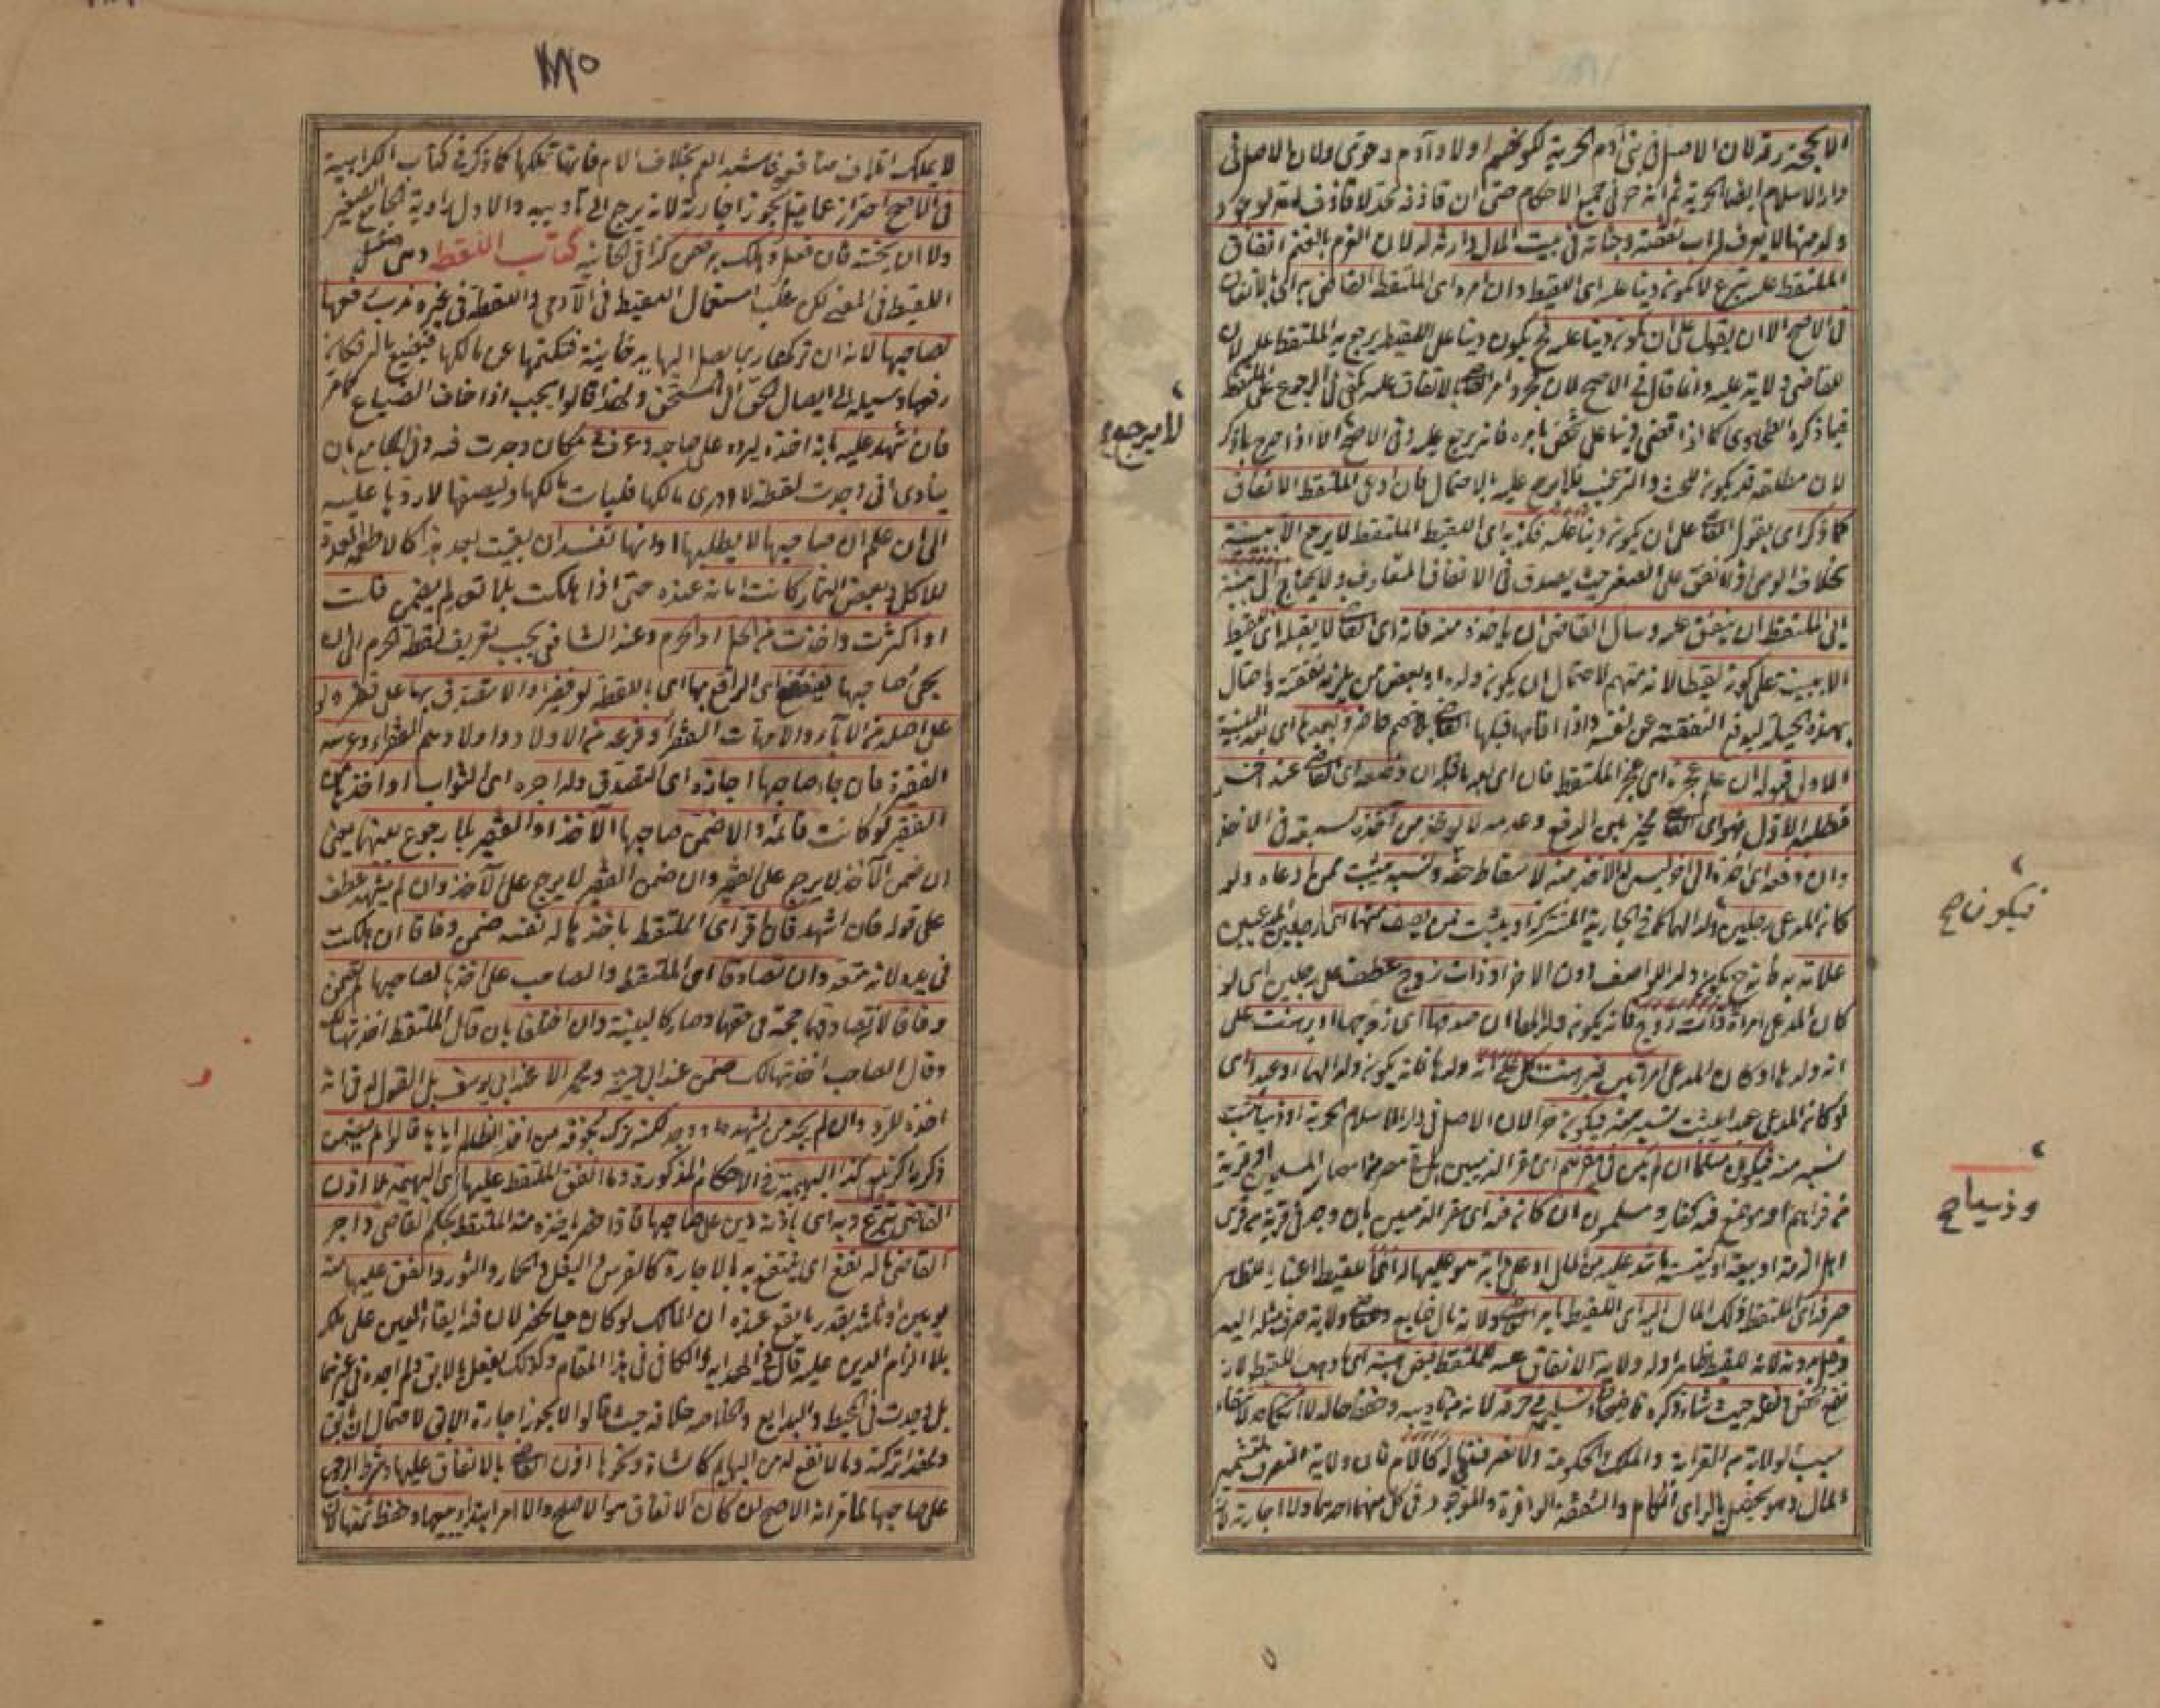 الا بحجة رقه لان الاصل في بني آدم الحرية لكونهم اولاد آدم وحوى ولان الاصل في
دار الاسلام ايضا الحرية ثم انه حر في جميع الاحكام حتى ان قاذفه يحد لا قاذف امه لوجود
ولد منها لا يعرف له اب نفقته وجنايته في بيت المال وارثه له لان الغرم بالغنم انفاق
الملتقط عليه تبرع لا يكون دينا عليه اى اللقيط وان امره اى الملتقط القاضى به اى بالانفاق
في الاصح الا ان يقول على ان يكون دينا عليه فح يكون دينا على اللقيط يرجع به الملتقط عليه لان
للقاضى ولاية عليه وانما قال في الاصح لان مجرد امر بالانفاق عليه يكفى في الرجوع على اللقيط
فيما ذكره الطحاوى كما اذا قضى دينا على شخص بامره فانه يرجع عليه وفي الاصح لا الا اذا صرح بما ذكر
لان مطلقه قد يكون للحث والترغيب فلا يرجع عليه بالاحتمال فان ادعى الملتقط الانفاق
كما ذكر اى بقول على ان يكون دينا عليه فكذبه اى اللقيط الملتقط لا يرجع الا ببينة
بخلاف الوصى اذا انفق على الصغير حيث يصدق في الانفاق المتعارف ولا يحتاج الى بينة
ابى الملتقط ان ينفق عليه وسأل القاضى ان ياخذه منه فانه اى لا يقبله اى اللقيط
الا ببينة على كونه لقيطا لانه متهم لاحتمال ان يكون ولده او بعض من يلزمه نفقته واحتال
بهذه الحيلة ليدفع النفقة عن نفسه واذا اقامها قبلها بلا خصم حاضر وبعدها اى البينة
الاولى قبوله ان علم عجزه اى عجز الملتقط فان اى بعد ما قبله ان وضعه اى عند آخر
فطلبه الاول فهو اى مخير بين الدفع وعدمه لا يؤخذ من آخذه لسبقه في الاخذ
وان دفعه اى آخذه الى آخر ليس له الاخذ منه لاسقاط حقه ونسبه يثبت ممن ادعاه ولو
كان المدعى رجلين ولد لهما كما في الجارية المشتركة او يثبت ممن يصف منهما اى الرجلين المدعيين
علامة به فانه ح يكون ولد الواصف دون الآخر او ذات زوج عطف على رجلين اى لو
كان المدعى امرأة ذات زوج فانه يكون ولد لها ان صدقها اى زوجها او برهنت على
انه ولدها او كان المدعى امرأتين فبرهنت كل على انه ولدها فانه يكون ولد لهما او عبد اى
لو كان المدعى عبدا يثبت نسبه منه فيكون حرا لان الاصل في دار الاسلام الحرية او ذميا يثبت
نسبه منه فيكون مسلما ان لم يكن في مقرهم اى مقر الذميين بل في مصر من امصار المسلمين او قرية
من قراهم او موضع فيه كفار ومسلمون ان كان فيه اى مقر الذميين بان وجد في قرية من قرى
اهل الذمة او بيعة او كنيسة ما شد عليه من المال او على دابة هو عليها له اى اللقيط اعتبارا للظاهر
صرف اى الملتقط ذلك المال اليه اى اللقيط بامر لانه مال ضايع وللقاضى ولاية صرف مثله اليه
وقيل بدونه لانه للقيط ظاهرا وله ولاية الانفاق عليه للملتقط قبض هبته اى ما وهب للقيط لانه
نفع محض ونقله حيث شاء ذكره قاضيخان وتسليمه في حرفة لانه من تاديبه وحفظ حاله لا انكاحه لانتفاء
سبب الولاية من القرابة والملك والحكومة ولا تصرف في ماله كالام فان ولاية التصرف لتثمير
المال وهو يحصل بالراى الكامل والشفقة الوافرة والموجود في كل منهما احدهما ولا اجارته لانه
لا يرجع
فيكون صح
وذميا صح
١١٨٥
لا يملك اتلاف منافعه فاشبه العم بخلاف الام فانها تملكها كما ذكر في كتاب الكراهية
في الاصح احتراز عما قيل يجوز اجارته لانه يرجع الى تاديبه والاول رواية الجامع الصغير
ولا ان يختنه فان فعل وهلك يضمن كذا في الخانية كتاب اللقطة وهى مثل
اللقيط في المعنى لكن غلب استعمال اللقيط في الآدمى واللقطة في غيره ندب رفعها
لصاحبها لانه ان تركها ربما يصل اليها يد خائنة فتكتمها عن مالكها فيضيع بالترك فكان
رفعها وسيلة الى ايصال الحق الى المستحق ولهذا قالوا يجب اذا خاف الضياع كما مر
فان اشهد عليه بانه اخذه ليرده على صاحبه وعرف في مكان وجدت فيه وفي المجامع بان
ينادى انى وجدت لقطة لا ادرى مالكها فليأت مالكها وليصفها لاردها عليه
الى ان علم ان صاحبها لا يطلبها او انها تفسد ان بقيت بعد هذا كالاطعمة المعدة
للاكل وبعض الثمار كانت امانة عنده حتى اذا هلكت بلا تعد لم يضمن قلت
او اكثرت واخذت من الحل او الحرم وعند الشافعى يجب تعريف لقطة الحرم الى ان
يجئ صاحبها فينتفع اى الرافع بها اى باللقطة لو فقيرا والا تصدق بها على فقير ولو
على اصله من الآباء والامهات الفقراء وفرعه من الاولاد واولادهم الفقراء وعرسه
الفقيرة فان جاء صاحبها اجازه اى التصدق وله اجره اى الثواب او اخذها من
الفقير لو كانت قائمة والا ضمن صاحبها الآخذ او الفقير بلا رجوع بينهما يعنى
ان ضمن الآخذ لا يرجع على الفقير وان ضمن الفقير لا يرجع على الآخذ وان لم يشهد عطف
على قوله فان اشهد فان اقر اى الملتقط باخذها لنفسه ضمن وفاقا ان هلكت
في يده لانه متعد وان تصادقا اى الملتقط والصاحب على اخذها لصاحبها لم يضمن
وفاقا لان تصادقهما حجة في حقهما وصار كالبينة وان اختلفا بان قال الملتقط اخذتها للمالك
وقال الصاحب اخذتها لك ضمن عند ابى حنيفة ومحمد لا عند ابى يوسف بل القول له في انه
اخذه للرد وان لم يجد من يشهده او وجد لكنه ترك لخوفه من اخذ الظالم اياها قالوا لم يضمن
ذكره الزيلعى كذا البهيمة في الاحكام المذكورة وما انفق الملتقط عليها اى البهيمة بلا اذن
القاضى تبرع وبه اى باذنه دين على صاحبها فاذا حضر ياخذه منه الملتقط بحكم القاضى واجر
القاضى ما له نفع اى ينتفع به بالاجارة كالفرس والبغل والحمار والثور وانفق عليها منه
يومين او ثلثة بقدر ما يقع عنده ان المالك لو كان حيا يحضر لان فيه ابقاء العين على ملكه
بلا الزام الدين عليه قال في الهداية والكافى في هذا المقام وكذلك يفعل بالآبق ولم اجده في غيرهما
بل وجدت في المحيط والبدايع والخلاصة خلافه حيث قالوا لا يجوز اجارة الآبق لاحتمال ان يأبق
ولهذا تركته وما لا نفع له من البهايم كالشاة ونحوها اذن بالانفاق عليها وشرط الرجوع
على صاحبها لما مر انه الاصح ان كان الانفاق هو الاصلح والا امر ببيعها وحفظ ثمنها لان